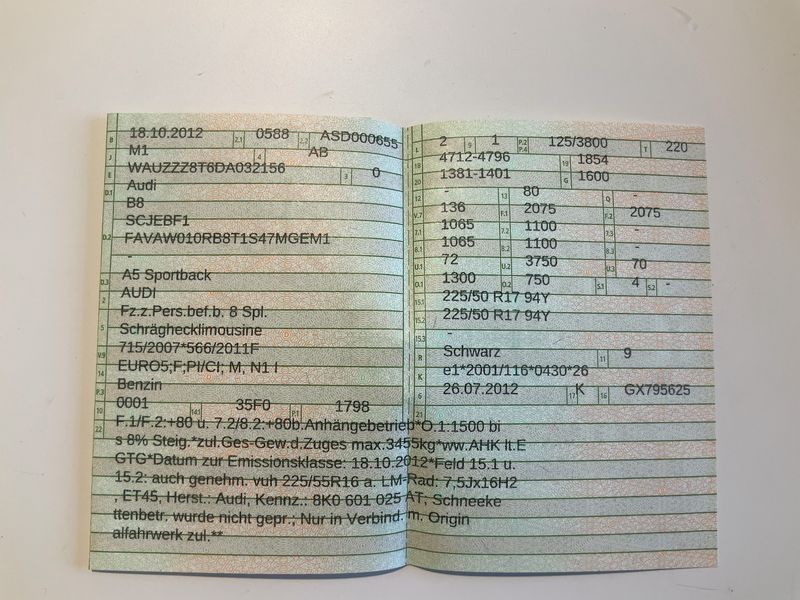 B 18.10.2012 2.1 0588 2.2 ASD000655
J M1 4 AB
E WAUZZZ8T6DA032156 3 0
D.1 Audi
B8
D.2 SCJEBF1
FAVAW010RB8T1S47MGEM1
-
D.3 A5 Sportback
2 AUDI
5 Fz.z.Pers.bef.b. 8 Spl.
Schräghecklimousine
V.9 715/2007*566/2011F
14 EURO5;F;PI/CI; M, N1 I
P.3 Benzin
10 0001 14.1 35F0 P.1 1798
L 2 9 1 P.2 P.4 125/3800 T 220
18 4712-4796 19 1854
20 1381-1401 G 1600
12 - 13 80 Q -
V.7 136 F.1 2075 F.2 2075
7.1 1065 7.2 1100 7.3 -
8.1 1065 8.2 1100 8.3 -
U.1 72 U.2 3750 U.3 70
O.1 1300 O.2 750 S.1 4 S.2 -
15.1 225/50 R17 94Y
15.2 225/50 R17 94Y
15.3 -
R Schwarz 11 9
K e1*2001/116*0430*26
6 26.07.2012 17 K 16 GX795625
21
22 F.1/F.2:+80 u. 7.2/8.2:+80b.Anhängebetrieb*O.1:1500 bi
s 8% Steig.*zul.Ges-Gew.d.Zuges max.3455kg*ww.AHK lt.E
GTG*Datum zur Emissionsklasse: 18.10.2012*Feld 15.1 u.
15.2: auch genehm. vuh 225/55R16 a. LM-Rad: 7,5Jx16H2
, ET45, Herst.: Audi, Kennz.: 8K0 601 025 AT; Schneeke
ttenbetr. wurde nicht gepr.; Nur in Verbind. m. Origin
alfahrwerk zul.**